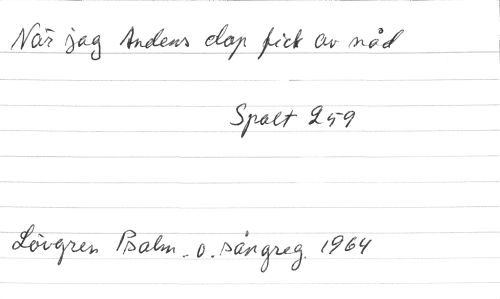 När jag Andens dop fick av nåd
Spalt 259
Lövgren Psalm- o. sångreg. 1964